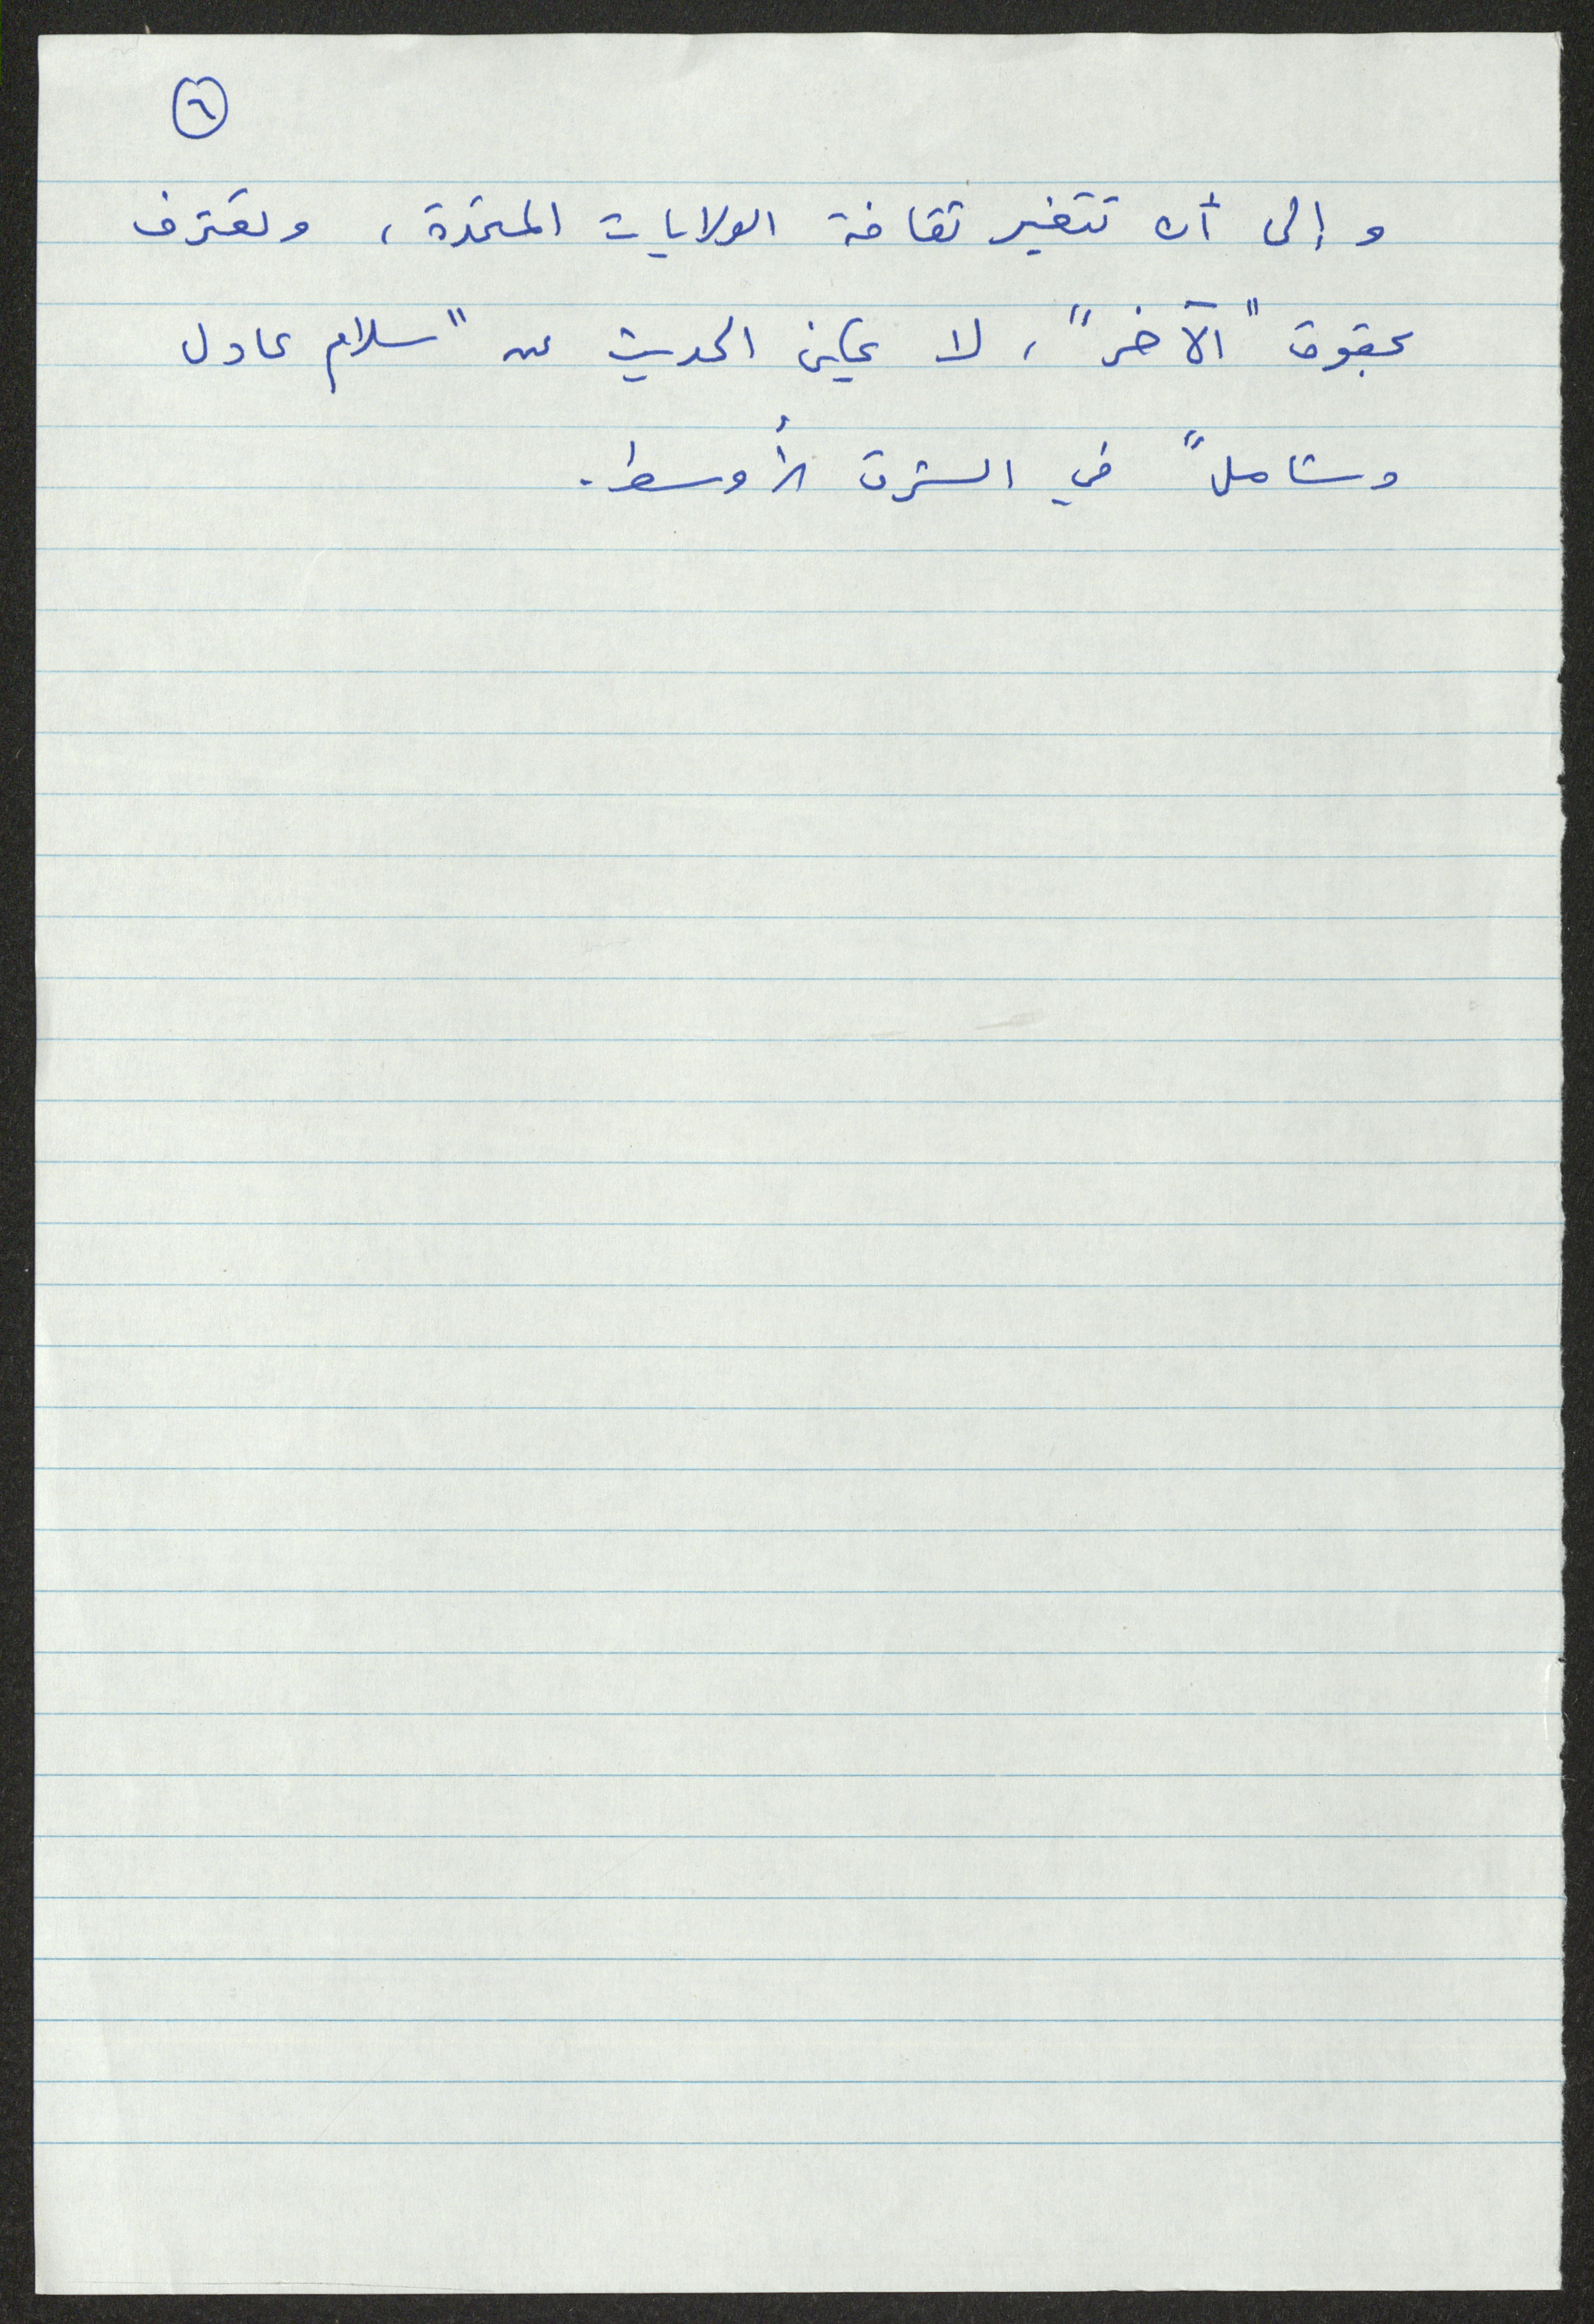 ٦
وإلى أن تتغير ثقافة الولايات المتحدة، وتعترف
بحقوق "الآخر"، لا يمكن الحديث عن "سلام عادل
وشامل" في الشرق الأوسط.